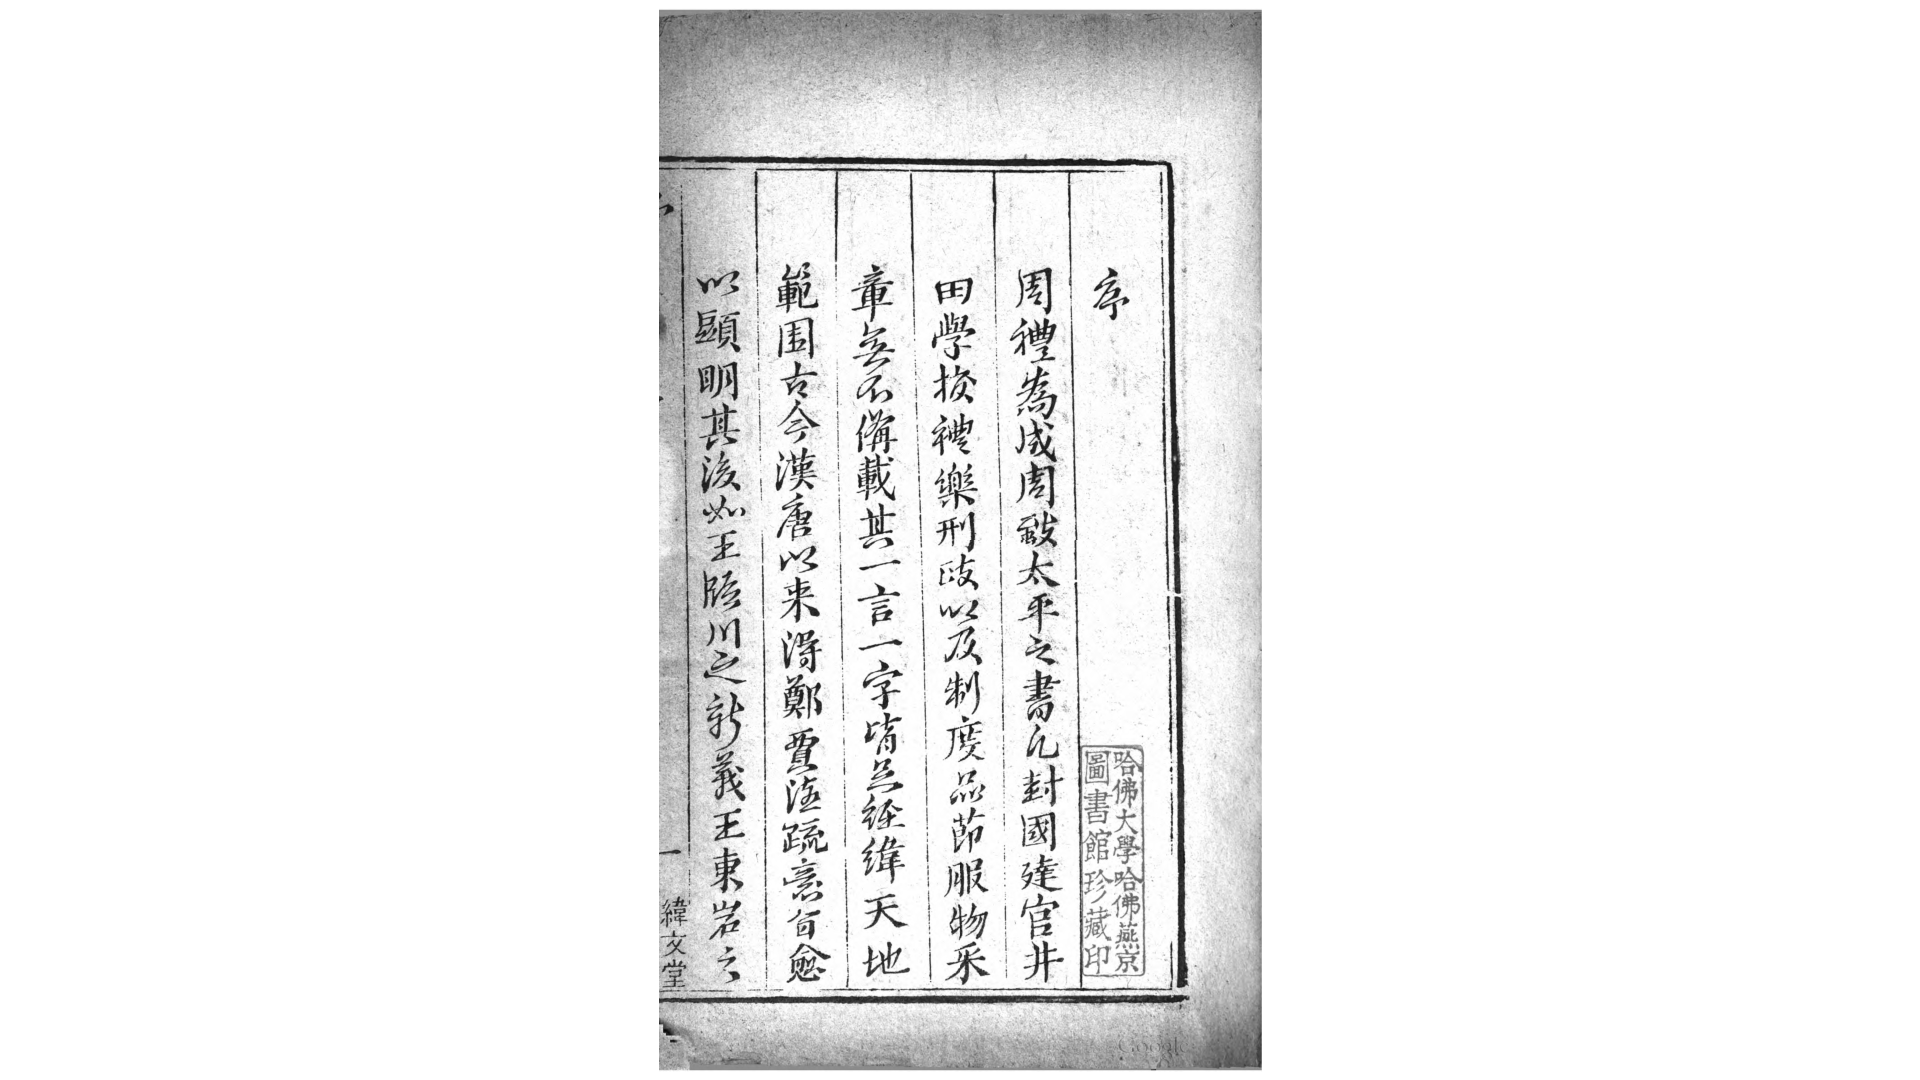 序
哈佛大學哈佛燕京
圖書館珍藏印
周禮為成周致太平之書凡封國建官井
田學校禮樂刑政以及制度品節服物采
章無不備載其一言一字皆足經緯天地
範圍古今漢唐以来得鄭賈注疏意旨愈
以顯明其後如王臨川之新義王東岩之
一
緯文堂